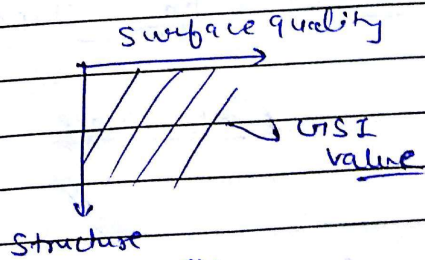 Surface quality
GSI
value
Structure